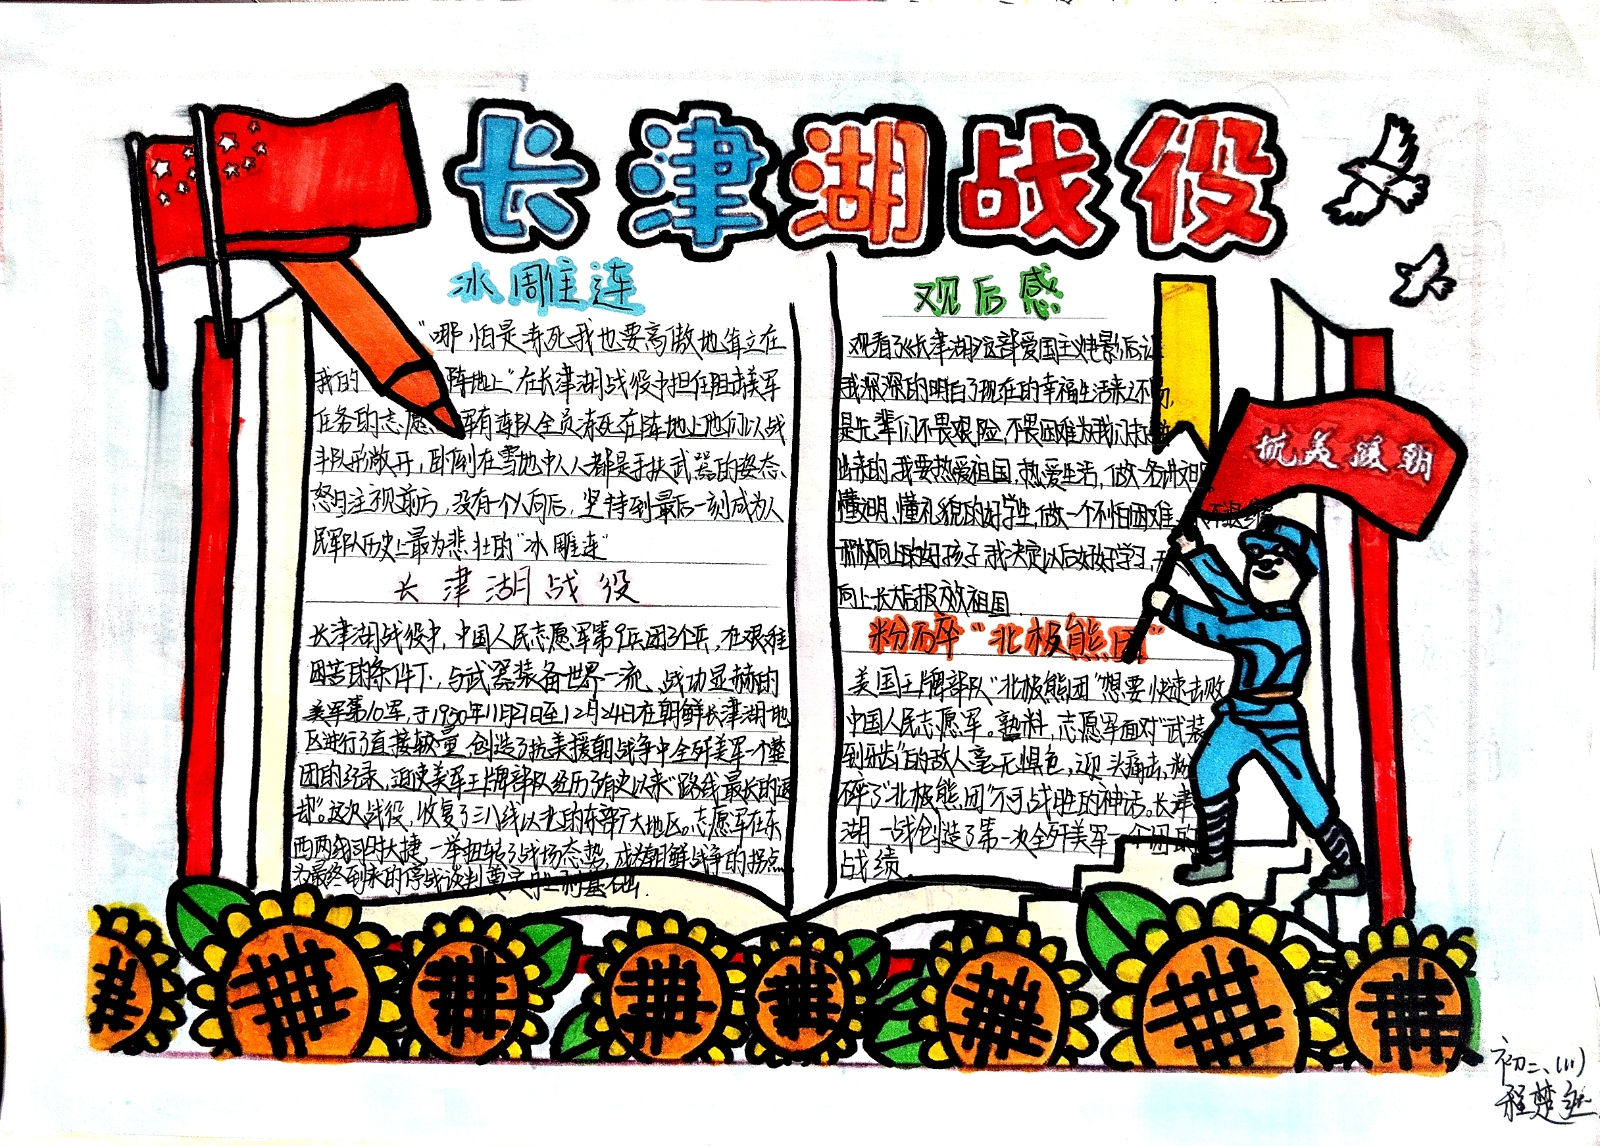 长津湖战役
冰雕连
"哪怕是冻死我也要高傲地耸立在
我的 阵地上"在长津湖战役中担任阻击美军
任务的志愿 军有连队全员冻死在阵地上他们以战
斗队形散开,卧倒在雪地中人人都是手扶武器的姿态、
怒目注视前方,没有一个人向后,坚持到最后一刻成为人
民军队历史上最为悲壮的"冰雕连"
长津湖战役
长津湖战役中,中国人民志愿军第9兵团3个军,在艰难
困苦的条件下,与武器装备世界一流、战功显赫的
美军第10军,于1950年11月27日至12月24日在朝鲜长津湖地
区进行了直接较量,创造了抗美援朝战争中全歼美军一个整
团的纪录,迫使美军王牌部队经历了有史以来"路线最长的退
却"。这次战役,收复了三八线以北的东部广大地区。志愿军在东
西两线同时大捷,一举扭转了战场态势,成为朝鲜战争的拐点
为最终到来的停战谈判奠定了胜利基础.
观后感
观看了《长津湖》这部爱国主义电影后让
我深深的明白了现在的幸福生活来之不易,
是先辈们不畏艰险,不畏困难为我们
出来的.我要热爱祖国,热爱生活,做一名讲文明
懂文明、懂礼貌的好学生,做一个不怕困难 不退缩
积极向上的好孩子.我决定以后好好学习,天
向上长大后报效祖国.
粉碎"北极熊团"
美国王牌部队"北极熊团"想要快速击败
中国人民志愿军。孰料,志愿军面对"武装
到牙齿"的敌人毫无惧色,迎头痛击,粉
碎了"北极熊团"不可战胜的神话。长津
湖一战创造了第一次全歼美军一个团的
战绩.
抗美援朝
初二、(11)
程楚